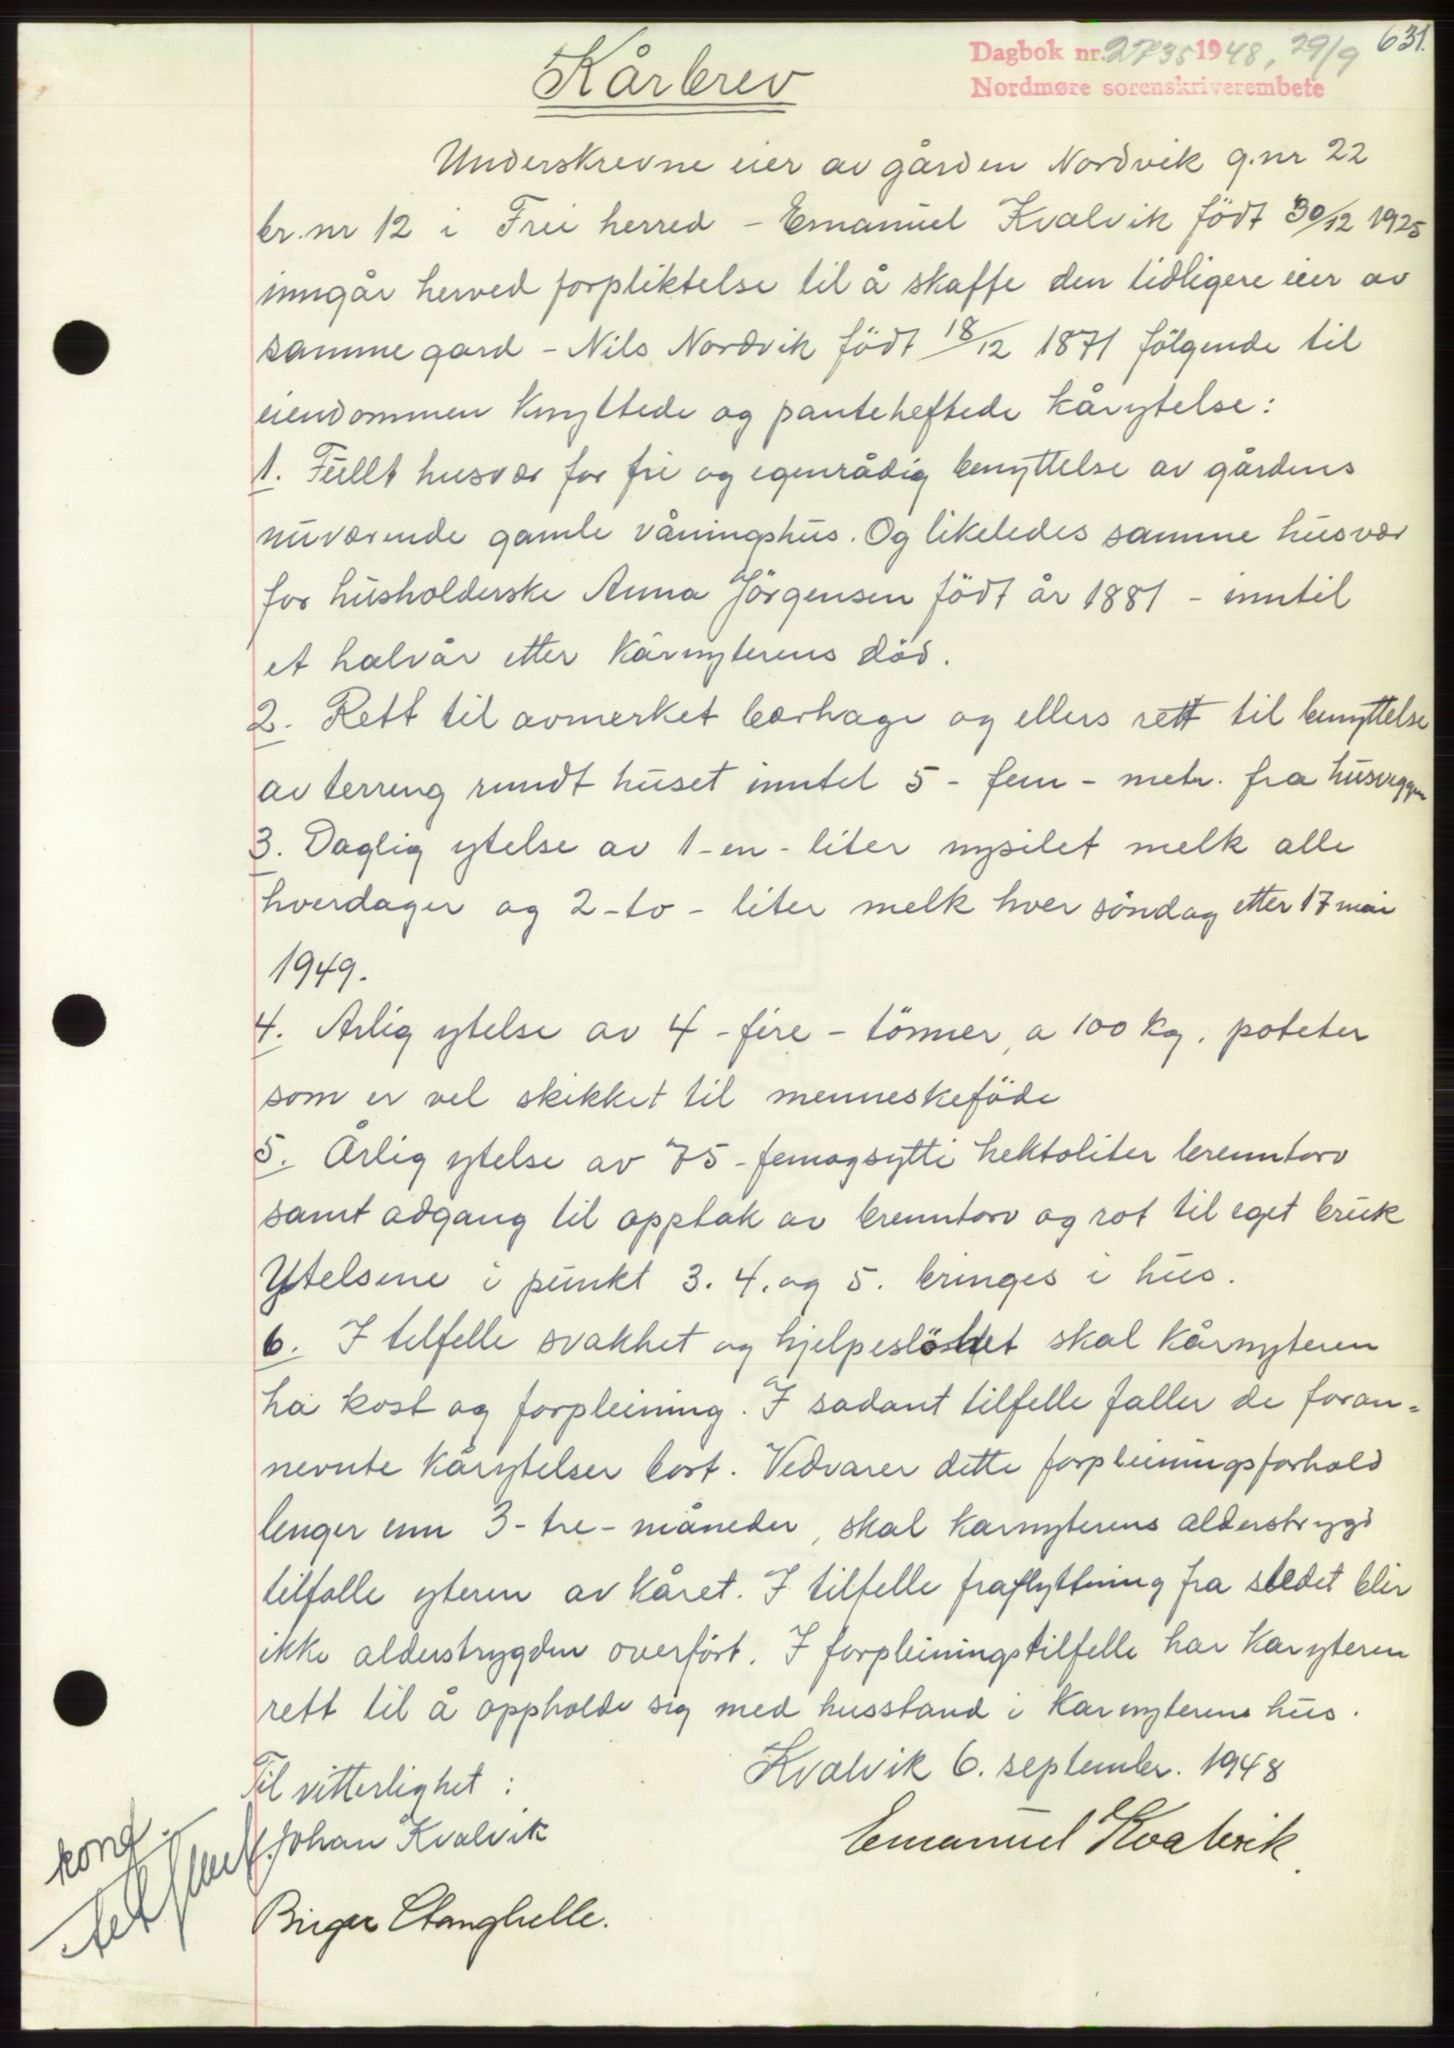 631.
Dagbok nr. 2735 1948, 29/9
Nordmøre sorenskriverembete
Kårbrev
Underskrevne eier av gården Nordvik g.nr 22
br.nr 12 i Frei herred - Emanuel Kvalvik födt 30/12 1925
inngår herved forpliktelse til å skaffe den tidligere eier av
samme gard - Nils Nordvik födt 18/12 1871 fölgende til
eiendommen knyttede og panteheftede kårytelse:
1. Fullt husvær for fri og egenrådig benyttelse av gårdens
nuværende gamle våningshus. Og likeledes samme husvær
for husholderske Anna Jörgensen födt år 1881 - inntil
et halvår etter kårnyterens död.
2. Rett til avmerket bærhage og ellers rett til benyttelse
av terreng rundt huset inntil 5 - fem - metr. fra husveggen
3. Daglig ytelse av 1 - en - liter nysilet melk alle
hverdager og 2 - to - liter melk hver söndag etter 17 mai
1949.
4. Arlig ytelse av 4 - fire - tönner, a 100 kg. poteter
som er vel skikket til menneskeföde
5. Årlig ytelse av 75 - femogsytti hektoliter brenntorv
samt adgang til opptak av brenntorv og rot til eget bruk
Ytelsene i punkt 3. 4. og 5. bringes i hus.
6. I tilfelle svakhet og hjelpeslöshet skal kårnyteren
ha kost og forpleining. I sådant tilfelle faller de foran=
nevnte kårytelser bort. Vedvarer dette forpleiningsforhold
lenger enn 3 - tre - måneder, skal karnyterens alderstrygd
tilfalle yteren av kåret. I tilfelle fraflyttning fra stedet blir
ikke alderstrygden overfört. I forpleiningstilfelle har karyteren
rett til å oppholde sig med husstand i karnyterens hus.
Kvalvik 6. september. 1948
Til vitterlighet:
Emanuel Kvalvik.
Johan Kvalvik
Birger Stanghelle.
konf.